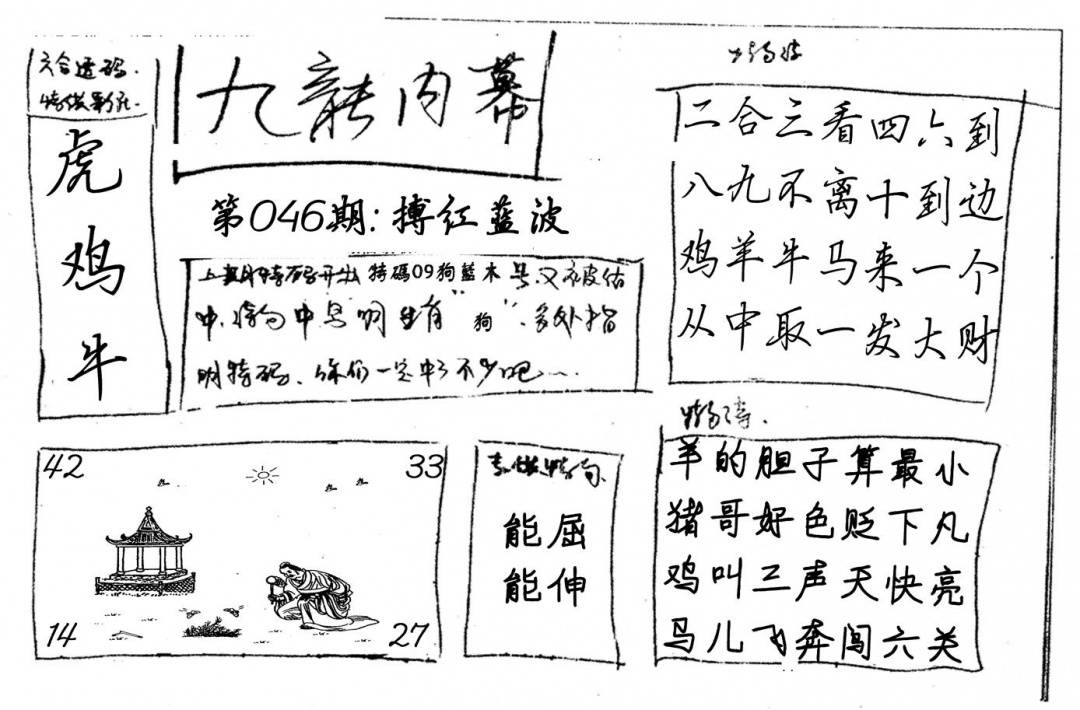 六合透码
虎
鸡
牛
九龍内幕
第046期:搏红蓝波
上期特码开出 特碼09狗藍木 号又被估
中, 中 生肖“狗”,多处指
明特码、你们一定中了不少吧……
二合三看四六到
八九不离十到边
鸡羊牛马来一个
从中取一发大财
42
33
14
27
能屈
能伸
羊的胆子算最小
猪哥好色贬下凡
鸡叫三声天快亮
鸟儿飞奔闯六关